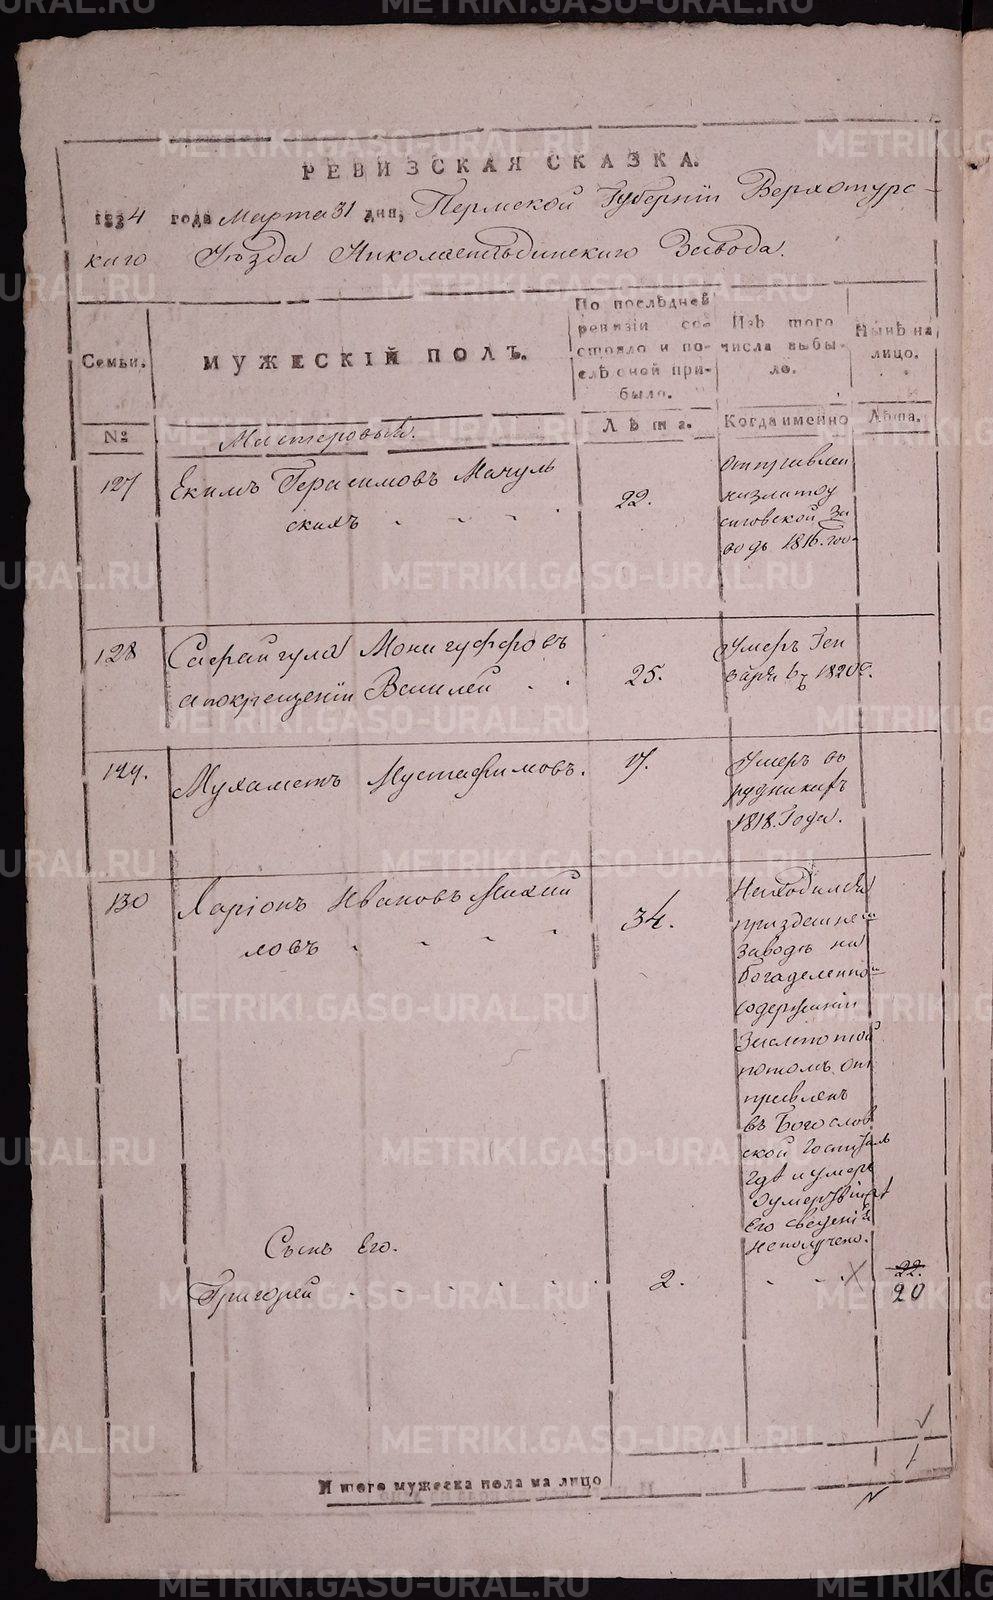 РЕВИЗСКАЯ СКАЗКА.
1834 года Марта 31 дня, Пермской Губерніи Верхотурс-
каго Уѣзда Николаепавдинскаго Завода.
Семьи.
МУЖЕСКІЙ ПОЛЪ.
По послѣдней
ревизіи со-
стояло и по-
слѣ оной при-
было.
Изъ того
числа выбы-
ло.
Нынѣ на
лицо.
№
Мастеровый.
Лѣта.
Когда именно
Лѣта.
127
Екимъ Герасимовъ Мачуль
скихъ
22.
отправлен
заводъ 1816. го
128
Сафайгула Монигуффровъ
а покрещеніи Василей
25.
Умеръ Ген
варя 1820 г.
129.
Мухаметъ Мустафимовъ.
17.
Умеръ въ
рудникахъ
1818. Года.
130
Ларіонъ Ивановъ Михай
ловъ
34.
Находился
приздешнем
Заводѣ на
богаделенно
содержаніи
потомъ от
правленъ
въ Богослов
ской Госпиталь
гдѣ и умеръ
Его сведеній
неполучено.
Сынъ Его.
Григорей
2.
22.
20
1
И того мужеска пола на лицо
METRIKI.GASO-URAL.RU